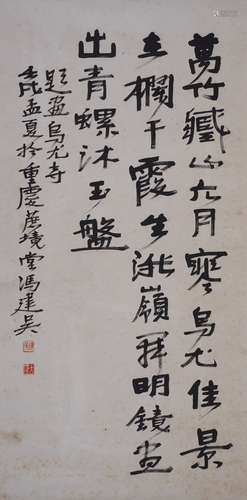 萬竹藏山六月寒烏尤佳景
主欄干霞生洮嶺羿明鏡畫
出青螺沐玉盤
題畫烏尤寺
壬戌孟夏於重慶蔗境堂馮建吳